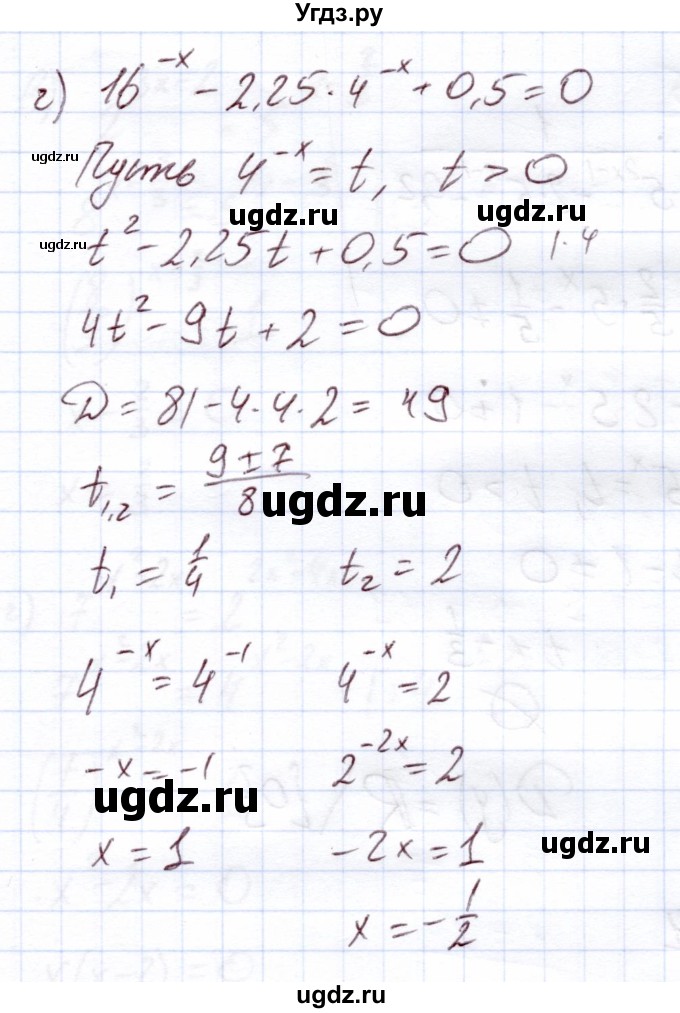 Угдз.ру
г) 16^{-x} - 2,25 · 4^{-x} + 0,5 = 0
ugdz.ru Пусть 4^{-x} = t, t > 0
ugdz.ru ugdz.ru
ugdz.ru t² - 2,25t + 0,5 = 0 | · 4
4t² - 9t + 2 = 0
D = 81 - 4 · 4 · 2 = 49
t_{1,2} = \frac{9 ± 7}{8}
ugdz.ru
t_1 = \frac{1}{4} t_2 = 2
4^{-x} = 4^{-1} 4^{-x} = 2
-x = -1 2^{-2x} = 2
ugdz.ru
x = 1 -2x = 1
ugdz.ru
x = -\frac{1}{2}
ugdz.ru